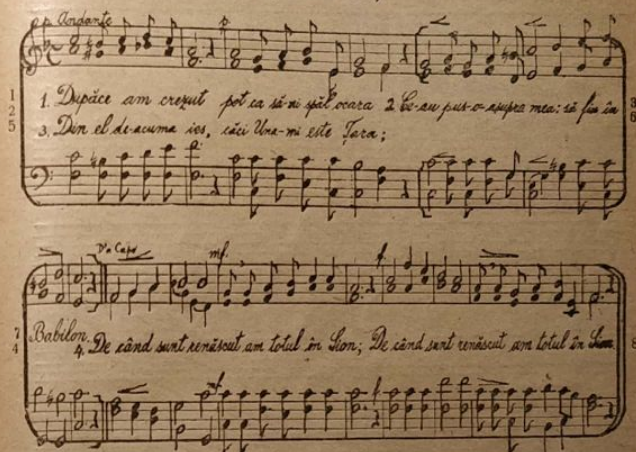 Andante p
1. Dupăce am crezut pot ca să-mi spăl ocara 2 Ce-au pus-o-asupra mea: să fiu în
3. Din el de-acuma ies, căci Una-mi este Ţara;
1
2
5
3
6
D'a Capo mf. f.
Babilon. 4. De când sunt renăscut am totul în Sion; De când sunt renăscut am totul în Sion
7
4
8
mf f